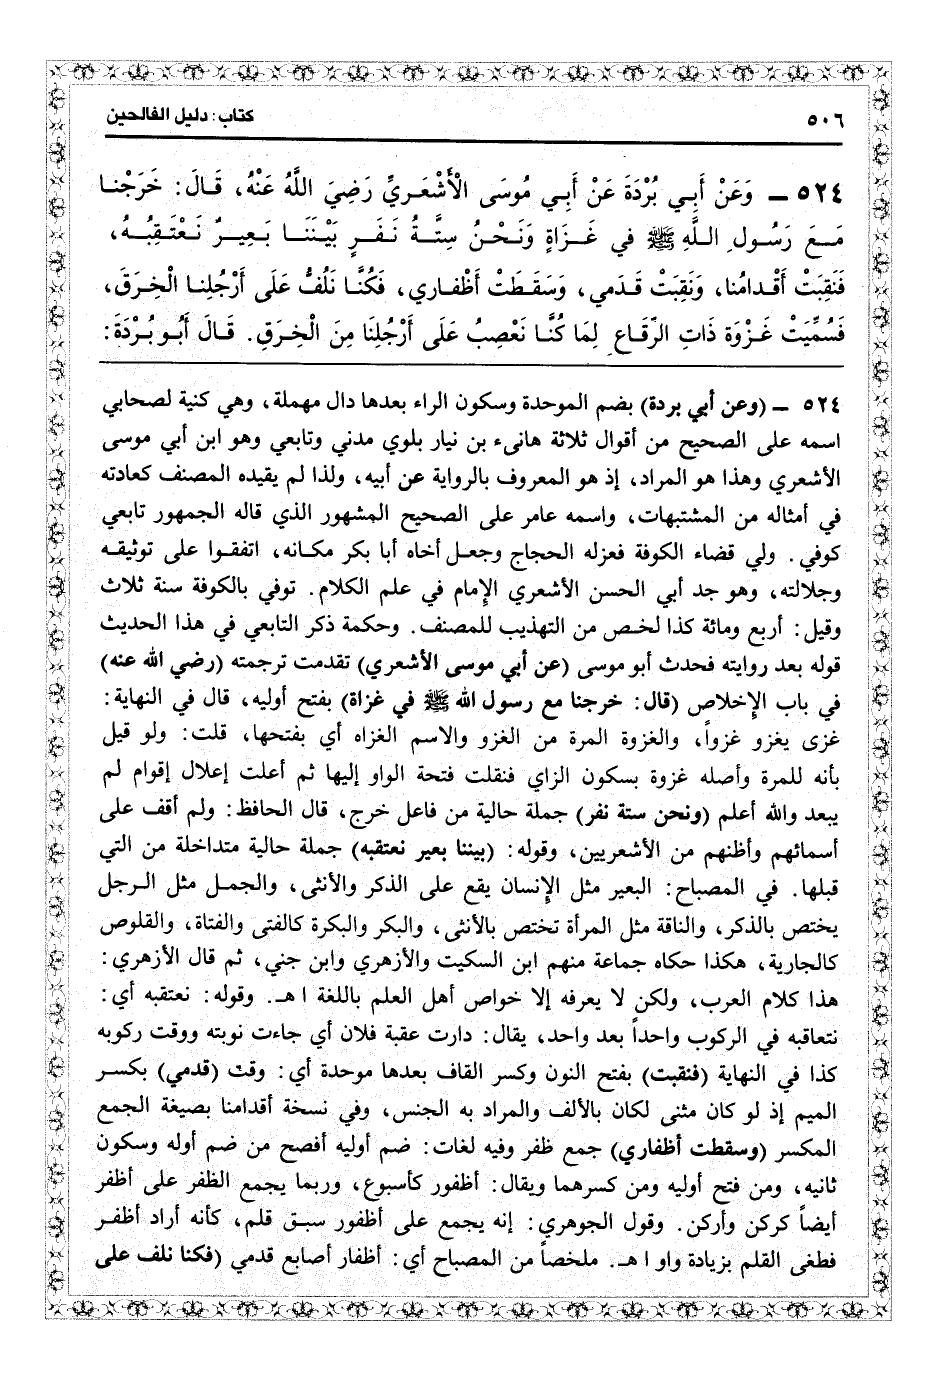 ٥٠٦
كتاب: دليل الفالحين
٥٢٤ ـ وَعَنْ أَبِي بُرْدَةَ عَنْ أَبِي مُوسَى الْأَشْعَرِيِّ رَضِيَ اللَّهُ عَنْهُ، قَالَ: خَرَجْنا
مَعَ رَسُولِ اللَّهِ ﷺ فِي غَزَاةٍ وَنَحْنُ سِتَّةُ نَفَرٍ بَيْنَنَا بَعِيرٌ نَعْتَقِبُهُ،
فَنَقِبَتْ أَقْدامُنا، وَنَقِبَتْ قَدَمِي، وَسَقَطَتْ أَظْفاري، فَكُنَّا نَلُفُّ عَلَى أَرْجُلِنا الْخِرَقَ،
فَسُمِّيَتْ غَزْوَةَ ذَاتِ الرِّقَاعِ لِمَا كُنَّا نَعْصِبُ عَلَى أَرْجُلِنَا مِنَ الْخِرَقِ. قَالَ أَبُو بُرْدَةَ:
٥٢٤ ـ (وعن أبي بردة) بضم الموحدة وسكون الراء بعدها دال مهملة، وهي كنية لصحابي
اسمه على الصحيح من أقوال ثلاثة هانىء بن نيار بلوي مدني وتابعي وهو ابن أبي موسى
الأشعري وهذا هو المراد، إذ هو المعروف بالرواية عن أبيه، ولذا لم يقيده المصنف كعادته
في أمثاله من المشتبهات، واسمه عامر على الصحيح المشهور الذي قاله الجمهور تابعي
كوفي. ولي قضاء الكوفة فعزله الحجاج وجعل أخاه أبا بكر مكانه، اتفقوا على توثيقه
وجلالته، وهو جد أبي الحسن الأشعري الإِمام في علم الكلام. توفي بالكوفة سنة ثلاث
وقيل: أربع ومائة كذا لخص من التهذيب للمصنف. وحكمة ذكر التابعي في هذا الحديث
قوله بعد روايته فحدث أبو موسى (عن أبي موسى الأشعري) تقدمت ترجمته (رضي الله عنه)
في باب الإِخلاص (قال: خرجنا مع رسول الله ﷺ في غزاة) بفتح أوليه، قال في النهاية:
غزى يغزو غزواً، والغزوة المرة من الغزو والاسم الغزاه أي بفتحها، قلت: ولو قيل
بأنه للمرة وأصله غزوة بسكون الزاي فنقلت فتحة الواو إليها ثم أعلت إعلال إقوام لم
يبعد والله أعلم (ونحن ستة نفر) جملة حالية من فاعل خرج، قال الحافظ: ولم أقف على
أسمائهم وأظنهم من الأشعريين، وقوله: (بيننا بعير نعتقبه) جملة حالية متداخلة من التي
قبلها. في المصباح: البعير مثل الإِنسان يقع على الذكر والأنثى، والجمل مثل الرجل
يختص بالذكر، والناقة مثل المرأة تختص بالأنثى، والبكر والبكرة كالفتى والفتاة، والقلوص
كالجارية، هكذا حكاه جماعة منهم ابن السكيت والأزهري وابن جني، ثم قال الأزهري:
هذا كلام العرب، ولكن لا يعرفه إلا خواص أهل العلم باللغة اهـ. وقوله: نعتقبه أي:
نتعاقبه في الركوب واحداً بعد واحد، يقال: دارت عقبة فلان أي جاءت نوبته ووقت ركوبه
كذا في النهاية (فنقبت) بفتح النون وكسر القاف بعدها موحدة أي: وقت (قدمي) بكسر
الميم إذ لو كان مثنى لكان بالألف والمراد به الجنس، وفي نسخة أقدامنا بصيغة الجمع
المكسر (وسقطت أظفاري) جمع ظفر وفيه لغات: ضم أوليه أفصح من ضم أوله وسكون
ثانيه، ومن فتح أوليه ومن كسرهما ويقال: أظفور كأسبوع، وربما يجمع الظفر على أظفر
أيضاً كركن وأركن. وقول الجوهري: إنه يجمع على أظفور سبق قلم، كأنه أراد أظفر
فطغى القلم بزيادة واو اهـ. ملخصاً من المصباح أي: أظفار أصابع قدمي (فكنا نلف على